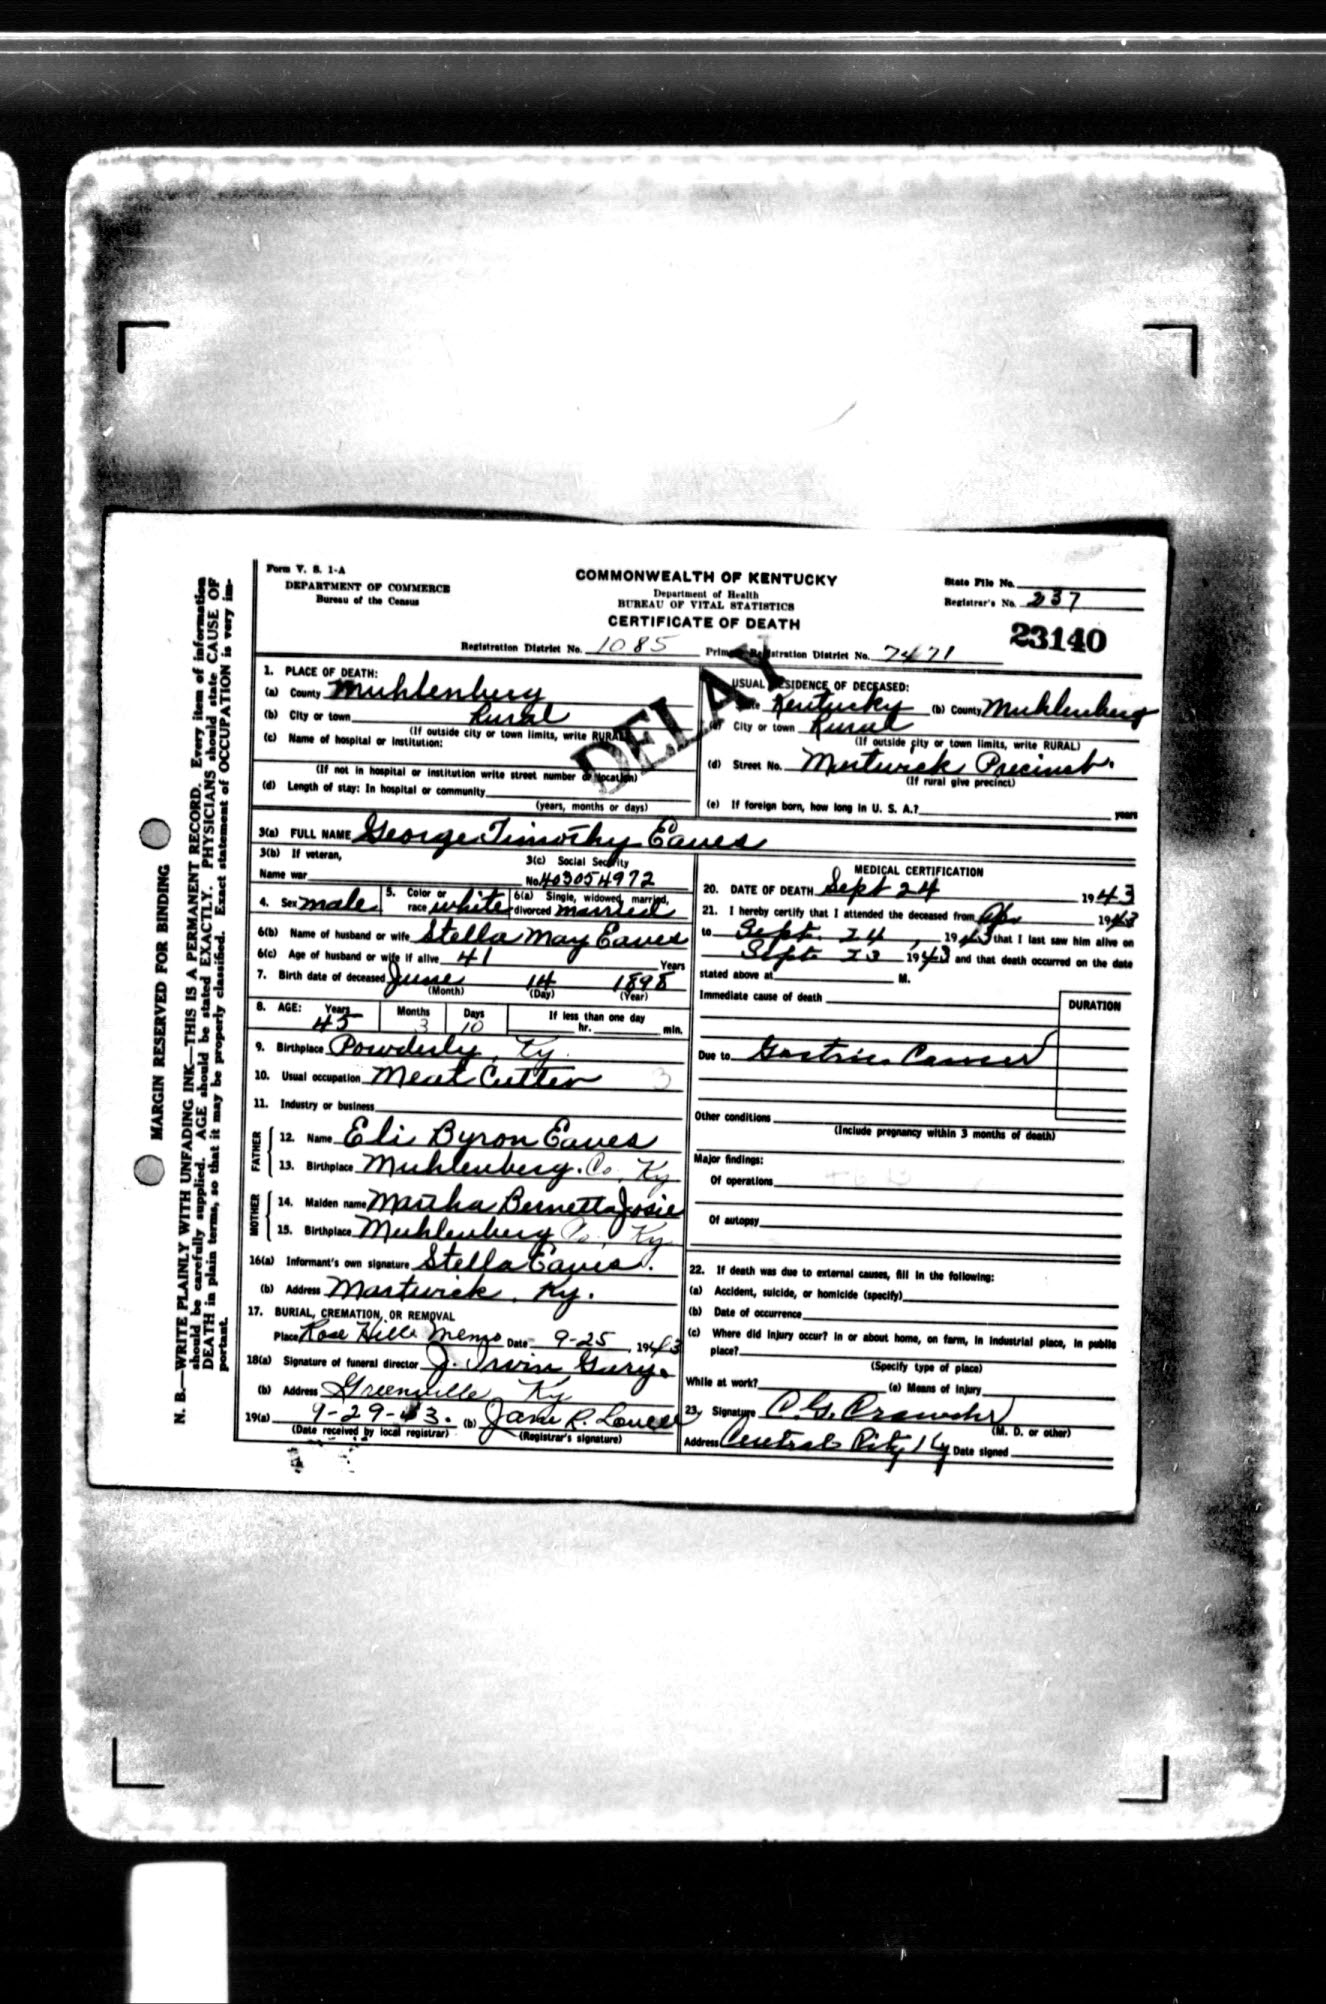 Form V. S. 1-A
DEPARTMENT OF COMMERCE
Bureau of the Census
COMMONWEALTH OF KENTUCKY
Department of Health
BUREAU OF VITAL STATISTICS
CERTIFICATE OF DEATH
State File No.
Registrar's No. 237
23140
Registration District No. 1085 Primary Registration District No. 7471
DELAY
1. PLACE OF DEATH:
(a) County Muhlenberg
(b) City or town Rural
(If outside city or town limits, write RURAL)
(c) Name of hospital or institution:
(If not in hospital or institution write street number or location)
(d) Length of stay: In hospital or community
(years, months or days)
USUAL RESIDENCE OF DECEASED:
Kentucky (b) County Muhlenberg
City or town Rural
(If outside city or town limits, write RURAL)
(d) Street No. Martwick Precinct.
(If rural give precinct)
(e) If foreign born, how long in U. S. A.? years
3(a) FULL NAME George Timothy Eaves
3(b) If veteran,
Name war
3(c) Social Security
No. 403054972
4. Sex male
5. Color or race white
6(a) Single, widowed, married, divorced married
6(b) Name of husband or wife Stella May Eaves
6(c) Age of husband or wife if alive 41 Years
7. Birth date of deceased June 14 1898
(Month) (Day) (Year)
8. AGE: Years 45 Months 3 Days 10 If less than one day hr. min.
9. Birthplace Powderly, Ky.
10. Usual occupation Meat Cutter 3
11. Industry or business
FATHER
12. Name Eli Byron Eaves
13. Birthplace Muhlenberg. Co. Ky
MOTHER
14. Maiden name Martha Bernetta Josie
15. Birthplace Muhlenberg Co. Ky
16(a) Informant's own signature Stella Eaves.
(b) Address Martwick, Ky.
17. BURIAL, CREMATION, OR REMOVAL
Place Rose Hill Memo Date 9-25, 1943
18(a) Signature of funeral director J. Irvin Gary.
(b) Address Greenville Ky
19(a) 9-29-43. (b) Jane R.
(Date received by local registrar) (Registrar's signature)
MEDICAL CERTIFICATION
20. DATE OF DEATH Sept 24 1943
21. I hereby certify that I attended the deceased from 1943
to Sept. 24, 1943 that I last saw him alive on
Sept. 23 1943 and that death occurred on the date
stated above at M.
Immediate cause of death
DURATION
Due to Gastric Cancer
Other conditions
(Include pregnancy within 3 months of death)
Major findings:
Of operations
Of autopsy
22. If death was due to external causes, fill in the following:
(a) Accident, suicide, or homicide (specify)
(b) Date of occurrence
(c) Where did injury occur? In or about home, on farm, in industrial place, in public
place?
(Specify type of place)
While at work? (e) Means of injury
23. Signature C. G.
(M. D. or other)
Address Central City Ky Date signed
MARGIN RESERVED FOR BINDING
N. B.—WRITE PLAINLY WITH UNFADING INK—THIS IS A PERMANENT RECORD. Every item of information
should be carefully supplied. AGE should be stated EXACTLY. PHYSICIANS should state CAUSE OF
DEATH in plain terms, so that it may be properly classified. Exact statement of OCCUPATION is very im-
portant.